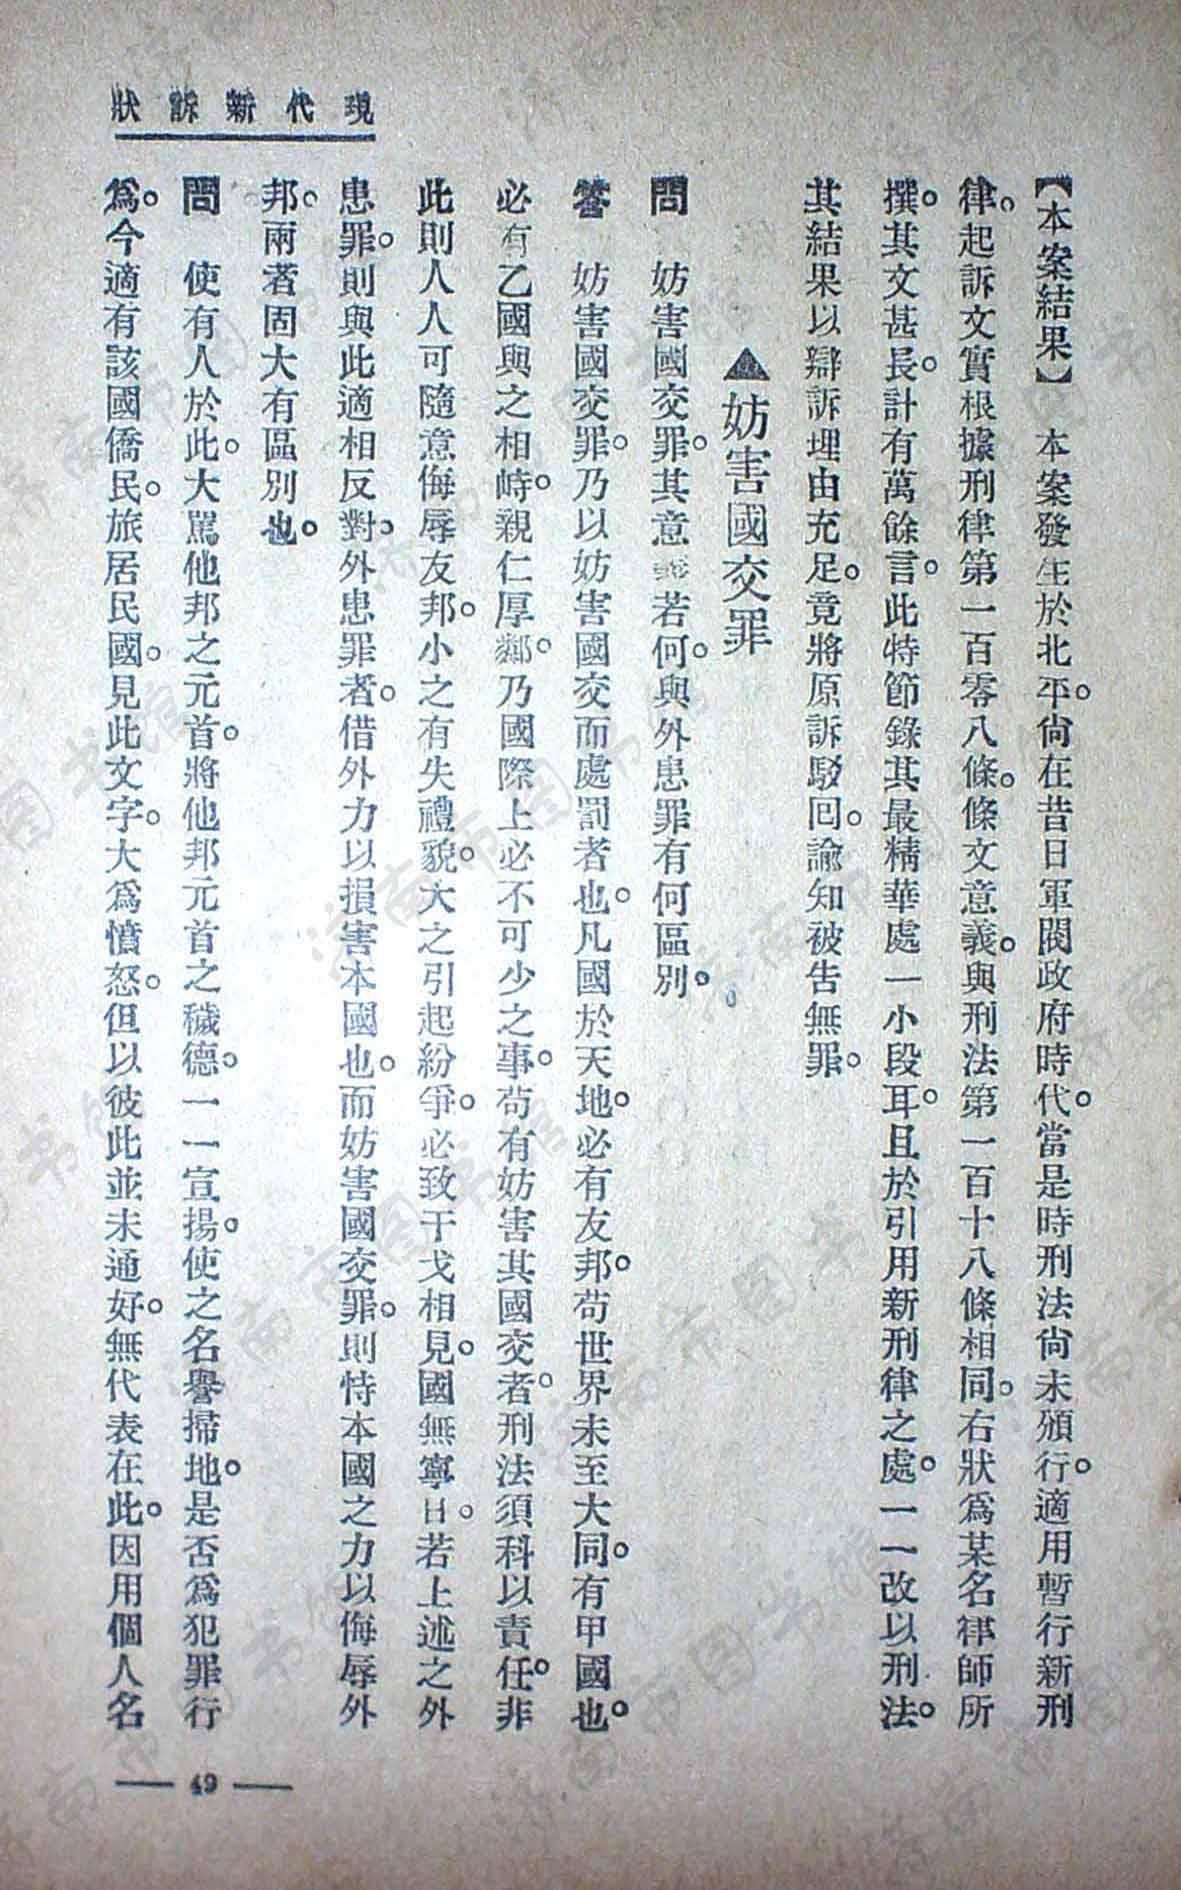 現代新訴狀
【本案結果】　本案發生於北平。尙在昔日軍閥政府時代。當是時刑法尙未頒行。適用暫行新刑
律。起訴文實根據刑律第一百零八條。條文意義。與刑法第一百十八條相同。右狀爲某名律師所
撰。其文甚長。計有萬餘言。此特節錄其最精華處一小段耳。且於引用新刑律之處。一一改以刑法。
其結果以辯訴理由充足。竟將原訴駁回。諭知被告無罪。
▲妨害國交罪
問　妨害國交罪。其意義若何。與外患罪有何區別。
答　妨害國交罪。乃以妨害國交而處罰者也。凡國於天地。必有友邦。苟世界未至大同。有甲國也。
必有乙國與之相峙。親仁厚鄰。乃國際上必不可少之事。苟有妨害其國交者。刑法須科以責任。非
此則人人可隨意侮辱友邦。小之有失禮貌。大之引起紛爭。必致干戈相見。國無寧日。若上述之外
患罪。則與此適相反對。外患罪者。借外力以損害本國也。而妨害國交罪。則恃本國之力以侮辱外
邦。兩者固大有區別也。
問　使有人於此。大罵他邦之元首。將他邦元首之穢德。一一宣揚。使之名譽掃地。是否爲犯罪行
爲。今適有該國僑民。旅居民國。見此文字。大爲憤怒。但以彼此並未通好。無代表在此。因用個人名
— 49 —
济南市图书馆